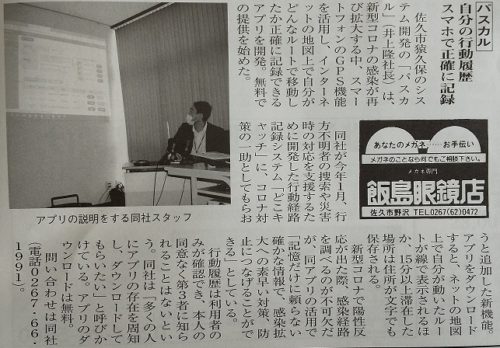 パスカル
自分の行動履歴
スマホで正確に記録
佐久市猿久保のシス
テム開発の「パスカ
ル」(井上隆社長)は、
新型コロナの感染が再
び拡大する中、スマー
トフォンのGPS機能
を活用し、インターネ
ットの地図上で自分が
どんなルートで移動し
たか正確に記録できる
アプリを開発。無料で
の提供を始めた。
同社が今年1月、行
方不明者の捜索や災害
時の対応を支援するた
めに開発した行動経路
記録システム「どこキ
ャッチ」に、コロナ対
策の一助としてもらお
うと追加した新機能。
アプリをダウンロード
すると、ネットの地図
上で自分が動いたルー
トが線で表示されるほ
か、15分以上滞在した
場所は住所が文字でも
保存される。
新型コロナで陽性反
応が出た際、感染経路
を調べるのが不可欠だ
が、同アプリの活用で
「記憶だけに頼らない
確かな情報で、感染拡
大への素早い対策、防
止につなげることがで
きる」としている。
行動履歴は利用者の
みが確認でき、本人の
同意なく第3者に知ら
れることはないとい
う。同社は「多くの人
にアプリの存在を周知
し、ダウンロードして
もらいたい」と呼びか
けている。アプリのダ
ウンロードは無料。
問い合わせは同社
(電話0267・66・
1991)。
アプリの説明をする同社スタッフ
あなたのメガネ……お手伝い
メガネのことなら何でもご相談下さい。
メガネ専門
飯島眼鏡店
佐久市野沢 TEL0267(62)0472